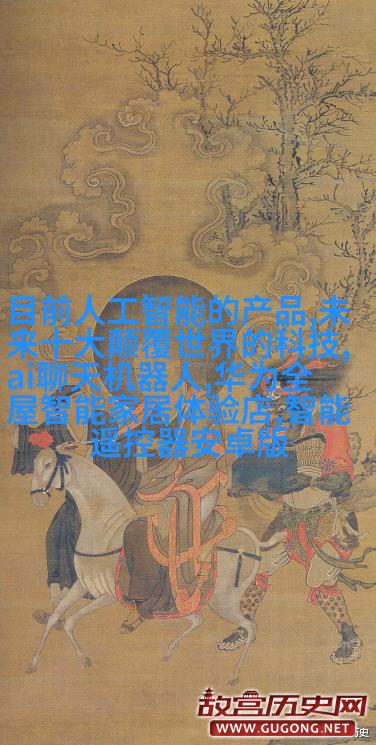 目前人工智能的产品,未
来十大颠覆世界的科技,
ai聊天机器人,华为全
屋智能家居体验店,智能
遥控器安卓版
故宫历史网
WWW.GUGONG.NET
历史